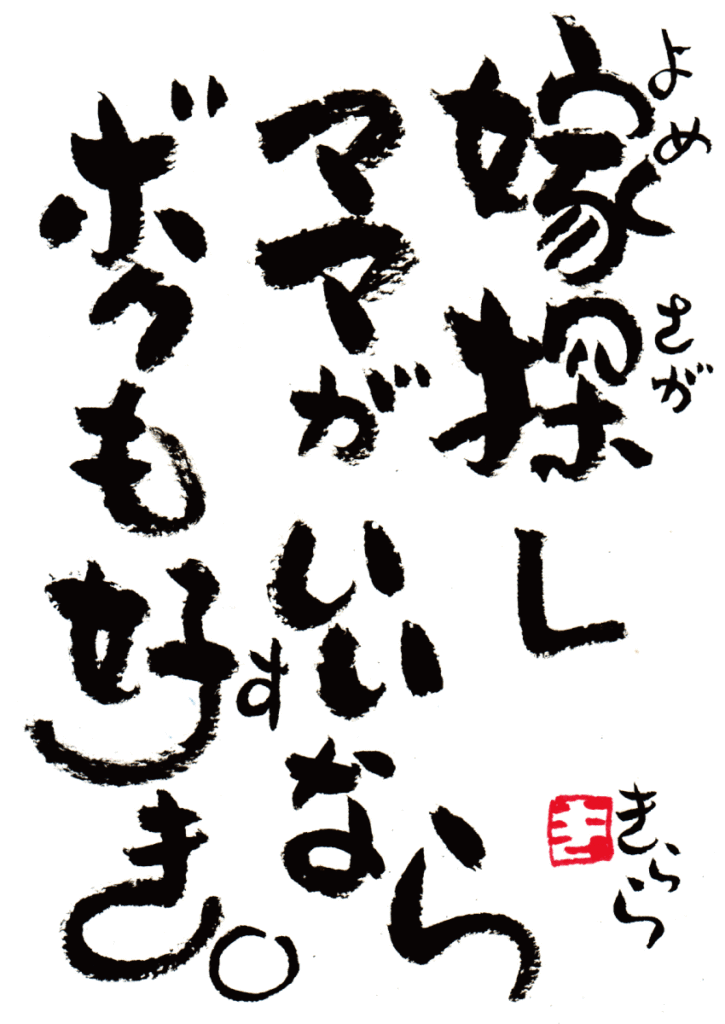 嫁探し
よめ さが
ママがいいなら
ボクも好き。
す
きらら